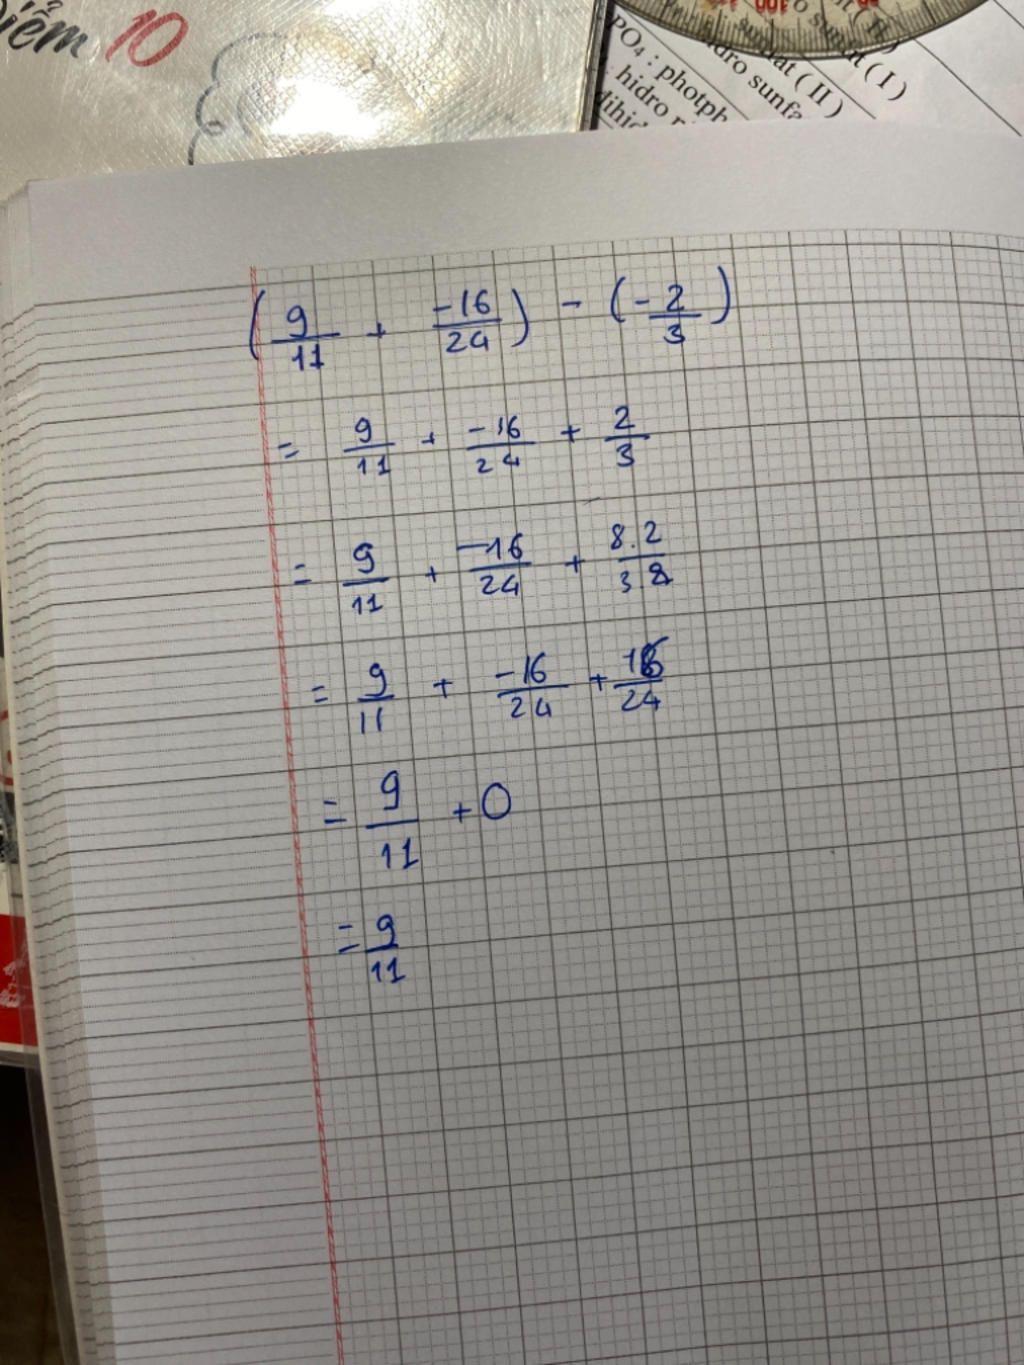 iểm 10
PO₄ : photph
hidro
dihid
dro sunfa
at ( II )
t ( I )
100
( 9/11 + -16/24 ) - ( - 2/3 )
= 9/11 + -16/24 + 2/3
= 9/11 + -16/24 + 8.2/3 8
= 9/11 + -16/24 + 16/24
= 9/11 + 0
= 9/11